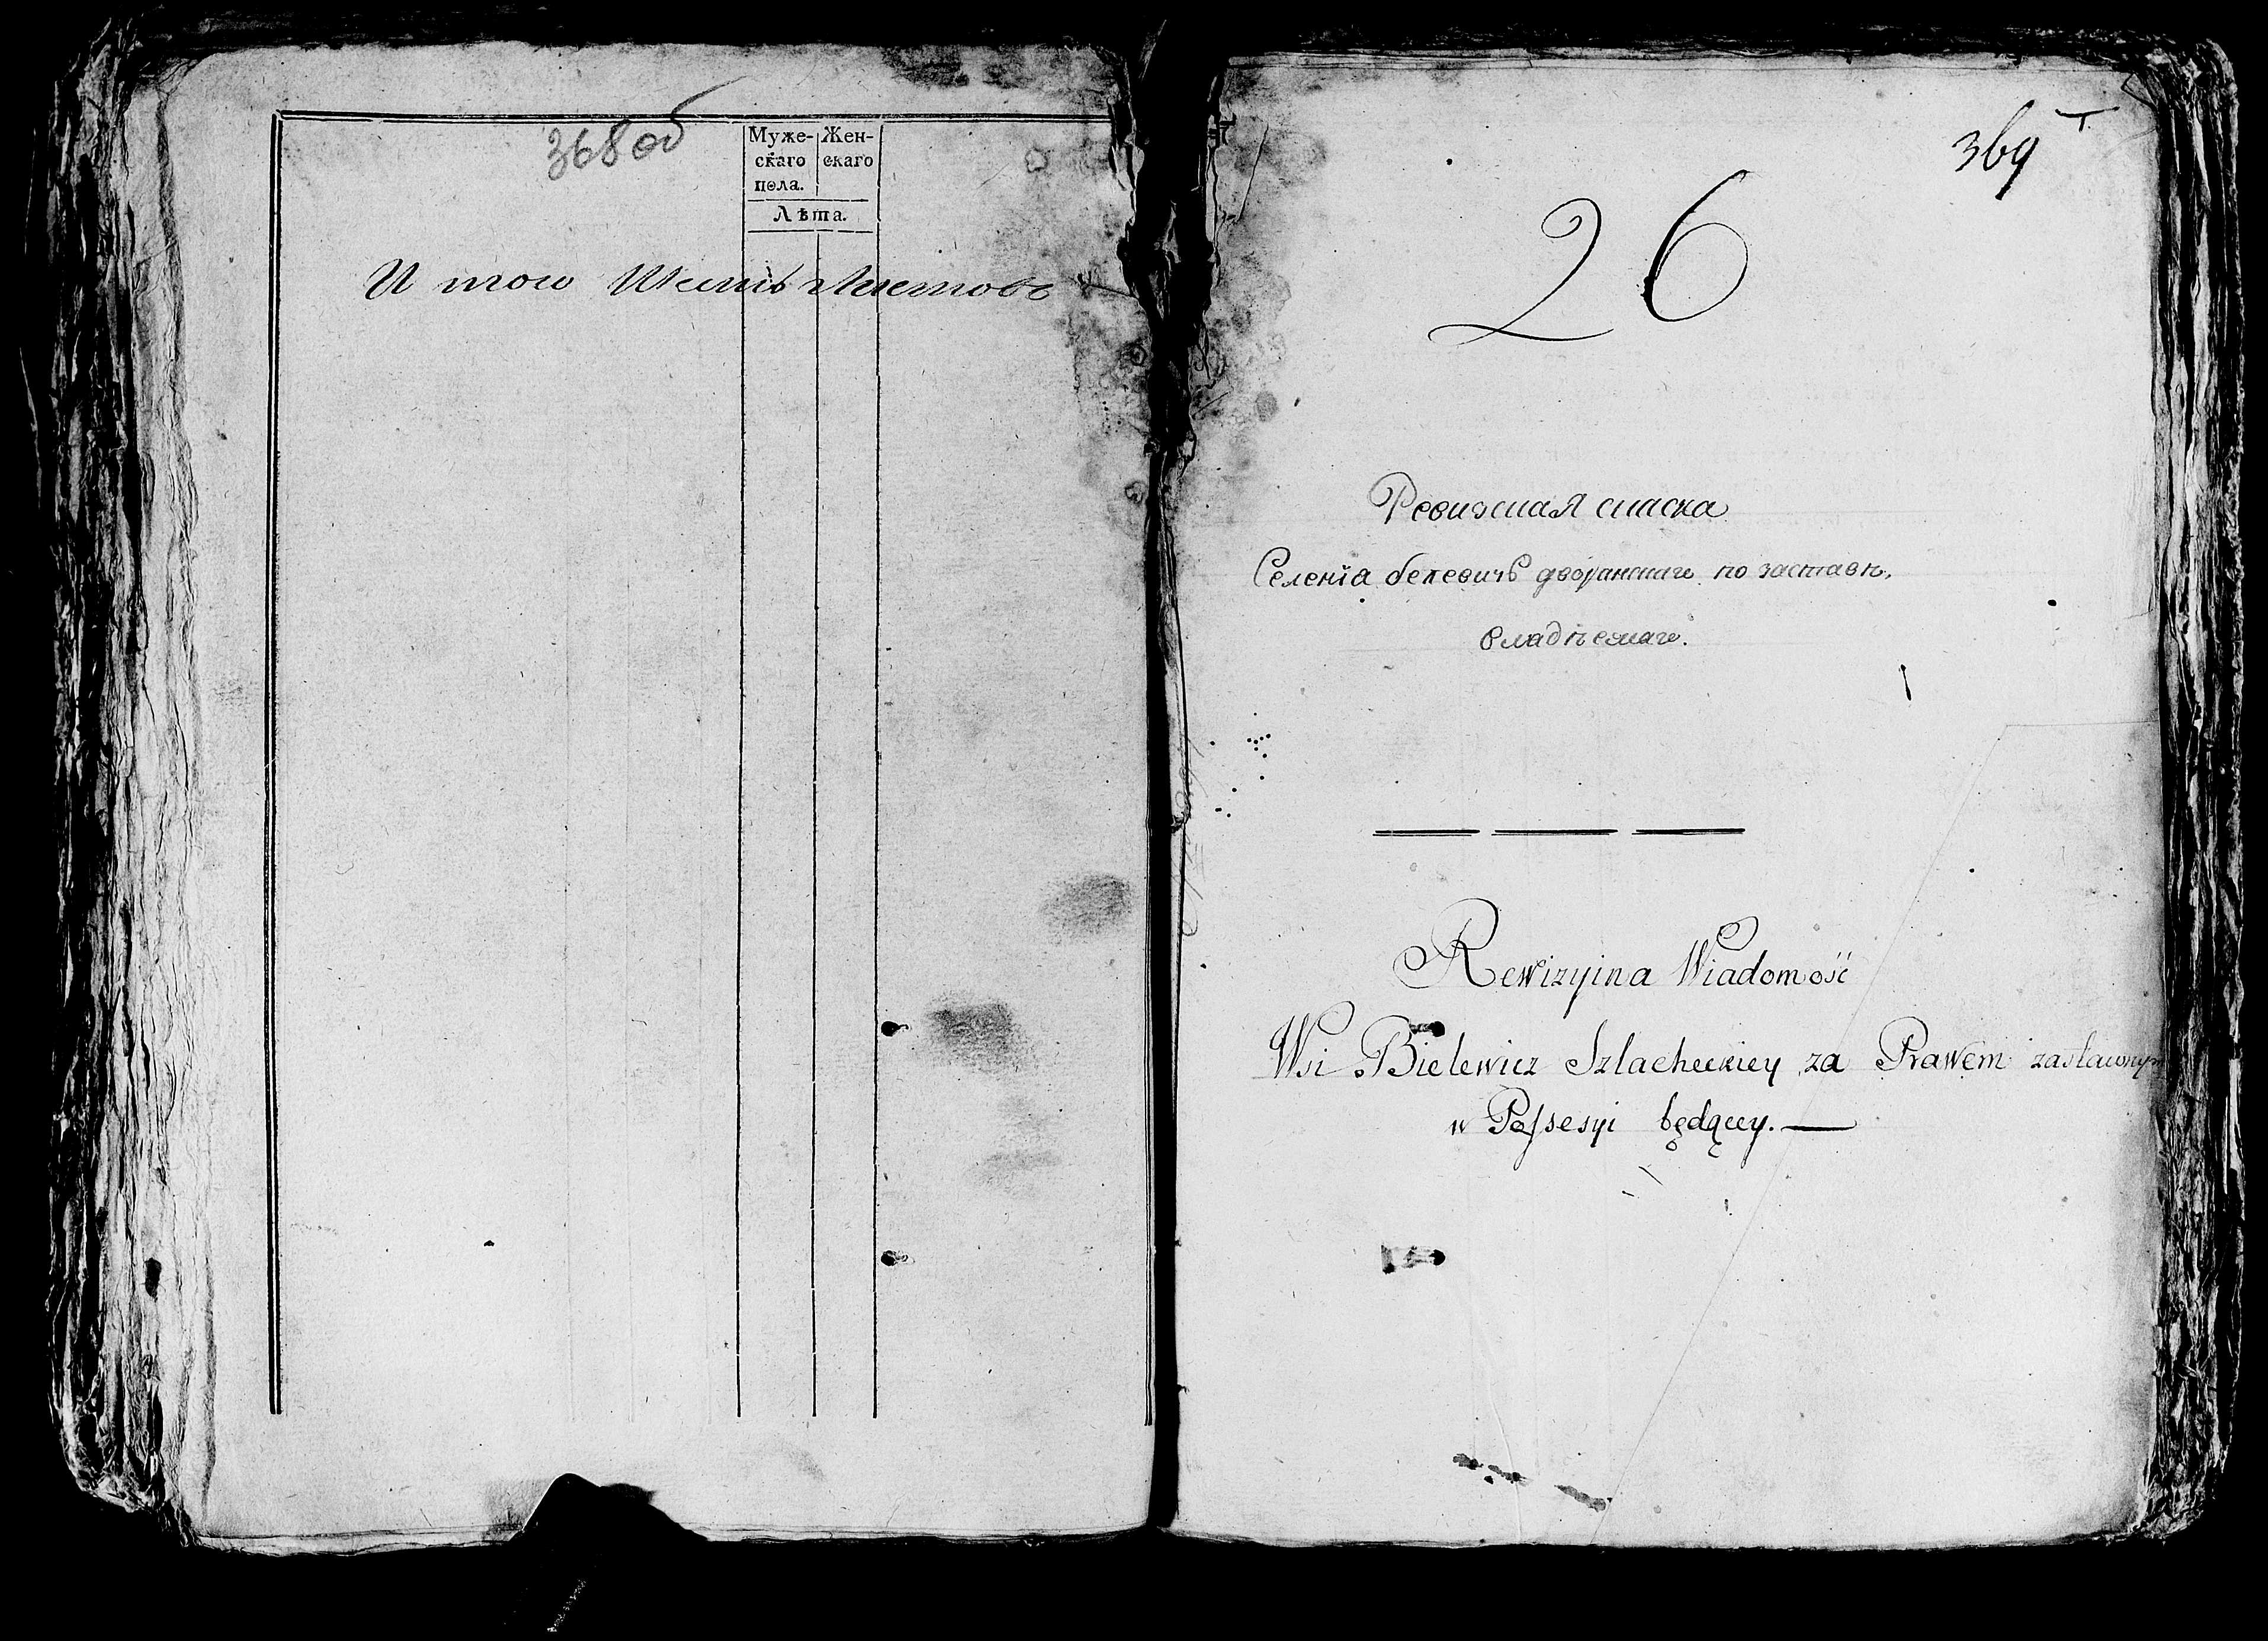 368 об
Муже- Жен-
скаго скаго
пола.
Лѣта.
И того Шесть Листовъ
369
26
Ревизская сказка
Селенїа белевичъ дворянскаго по заставѣ,
владѣемаго.
Rewizyina Wiadomość
Wsi Bielewicz Szlacheckiey za Prawem zastawnym
w Possesyi będącey.